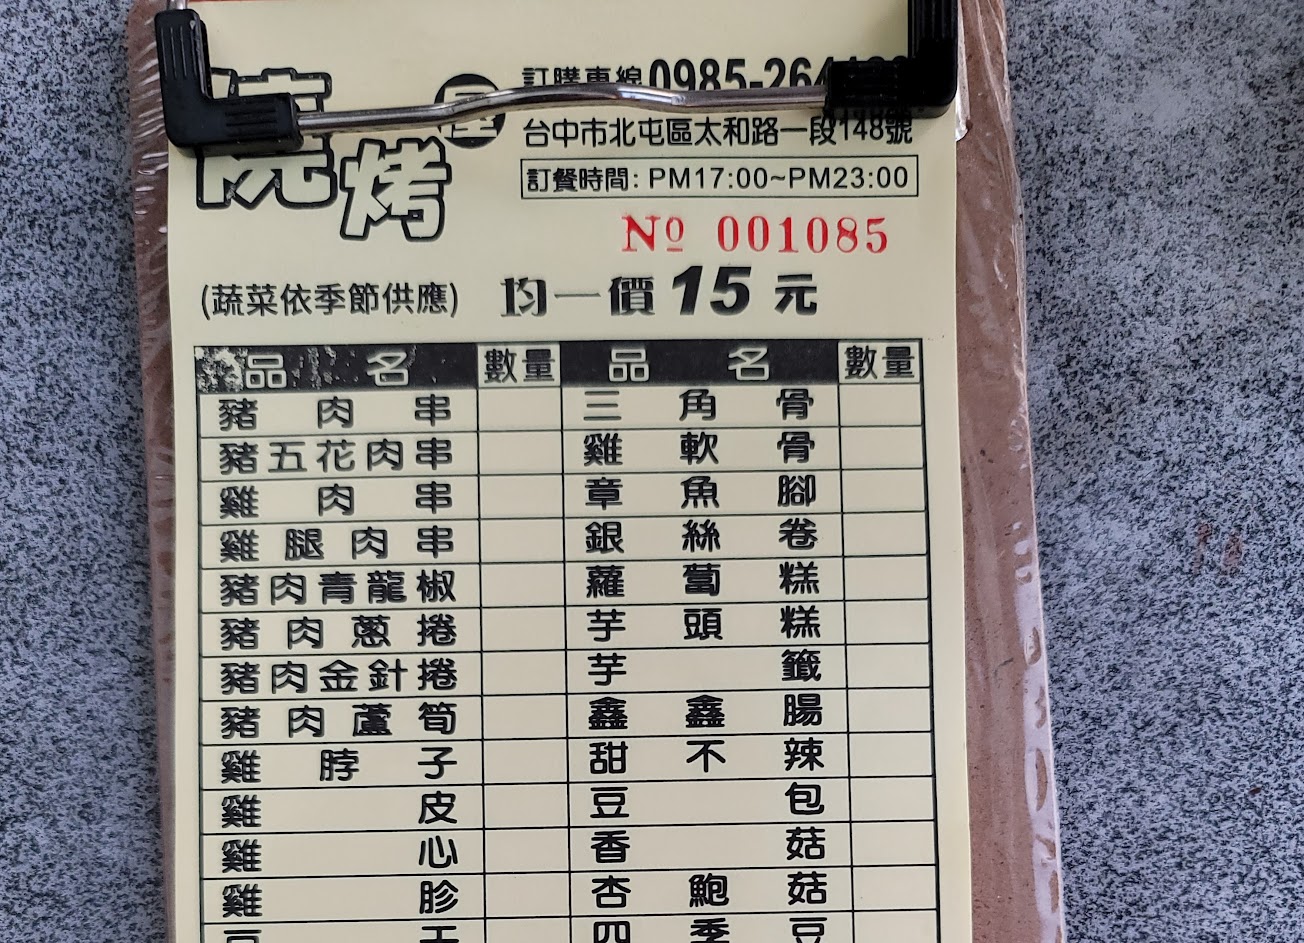 燒烤屋
訂購專線0985-264
台中市北屯區太和路一段148號
訂餐時間: PM17:00~PM23:00
Nº 001085
(蔬菜依季節供應) 均一價15元
品名 數量 品名 數量
豬肉串 三角骨
豬五花肉串 雞軟骨
雞肉串 章魚腳
雞腿肉串 銀絲卷
豬肉青龍椒 蘿蔔糕
豬肉蔥捲 芋頭糕
豬肉金針捲 芋籤
豬肉蘆筍 鑫鑫腸
雞脖子 甜不辣
雞皮 豆包
雞心 香菇
雞胗 杏鮑菇
四季豆